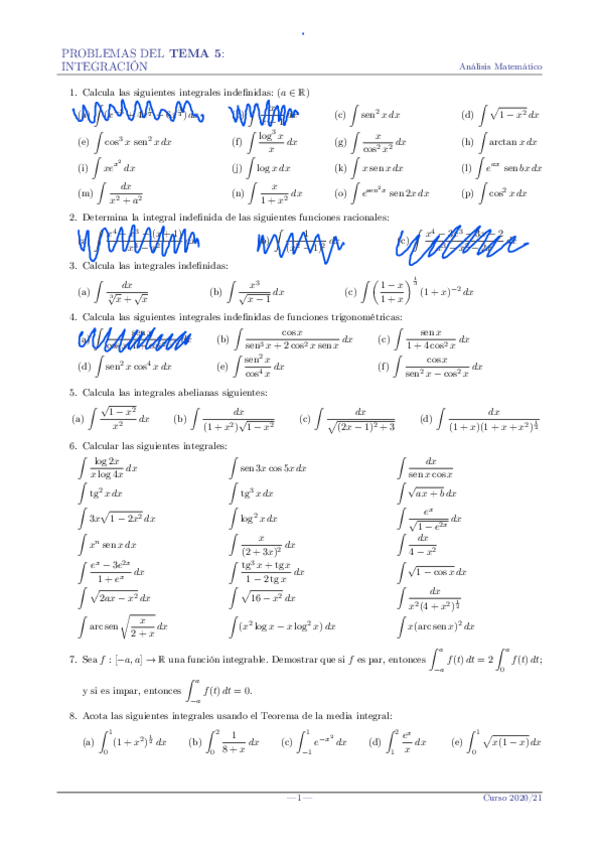 PROBLEMAS DEL TEMA 5:
INTEGRACIÓN Análisis Matemático
1. Calcula las siguientes integrales indefinidas: (a ∈ ℝ)
(c) ∫ sen² x dx (d) ∫ √(1 − x²) dx
(e) ∫ cos³ x sen² x dx (f) ∫ log³ x / x dx (g) ∫ x / cos² x² dx (h) ∫ arctan x dx
(i) ∫ xe^(x²) dx (j) ∫ log x dx (k) ∫ x sen x dx (l) ∫ e^(ax) sen bx dx
(m) ∫ dx / (x² + a²) (n) ∫ x / (1 + x²) dx (o) ∫ e^(sen² x) sen 2x dx (p) ∫ cos² x dx
2. Determina la integral indefinida de las siguientes funciones racionales:
3. Calcula las integrales indefinidas:
(a) ∫ dx / (∛x + √x) (b) ∫ x³ / √(x − 1) dx (c) ∫ ((1 − x)/(1 + x))^(1/3) (1 + x)^(−2) dx
4. Calcula las siguientes integrales indefinidas de funciones trigonométricas:
(b) ∫ cos x / (sen³ x + 2 cos² x sen x) dx (c) ∫ sen x / (1 + 4 cos² x) dx
(d) ∫ sen² x cos⁴ x dx (e) ∫ sen² x / cos⁴ x dx (f) ∫ cos x / (sen² x − cos² x) dx
5. Calcula las integrales abelianas siguientes:
(a) ∫ √(1 − x²) / x² dx (b) ∫ dx / ((1 + x²)√(1 − x²)) (c) ∫ dx / √((2x − 1)² + 3) (d) ∫ dx / ((1 + x)(1 + x + x²)^(1/2))
6. Calcular las siguientes integrales:
∫ log 2x / (x log 4x) dx ∫ sen 3x cos 5x dx ∫ dx / (sen x cos x)
∫ tg² x dx ∫ tg³ x dx ∫ √(ax + b) dx
∫ 3x√(1 − 2x²) dx ∫ log² x dx ∫ e^x / √(1 − e^(2x)) dx
∫ xⁿ sen x dx ∫ x / (2 + 3x)² dx ∫ dx / (4 − x²)
∫ (e^x − 3e^(2x)) / (1 + e^x) dx ∫ (tg³ x + tg x) / (1 − 2 tg x) dx ∫ √(1 − cos x) dx
∫ √(2ax − x²) dx ∫ √(16 − x²) dx ∫ dx / (x²(4 + x²)^(1/2))
∫ arc sen √(x / (2 + x)) dx ∫ (x² log x − x log² x) dx ∫ x(arc sen x)² dx
7. Sea f : [−a, a] → ℝ una función integrable. Demostrar que si f es par, entonces ∫_{−a}^{a} f(t) dt = 2 ∫_{0}^{a} f(t) dt;
y si es impar, entonces ∫_{−a}^{a} f(t) dt = 0.
8. Acota las siguientes integrales usando el Teorema de la media integral:
(a) ∫_{0}^{1} (1 + x²)^(1/2) dx (b) ∫_{0}^{2} 1 / (8 + x) dx (c) ∫_{−1}^{1} e^(−x²) dx (d) ∫_{1}^{2} e^x / x dx (e) ∫_{0}^{1} √(x(1 − x)) dx
—1— Curso 2020/21